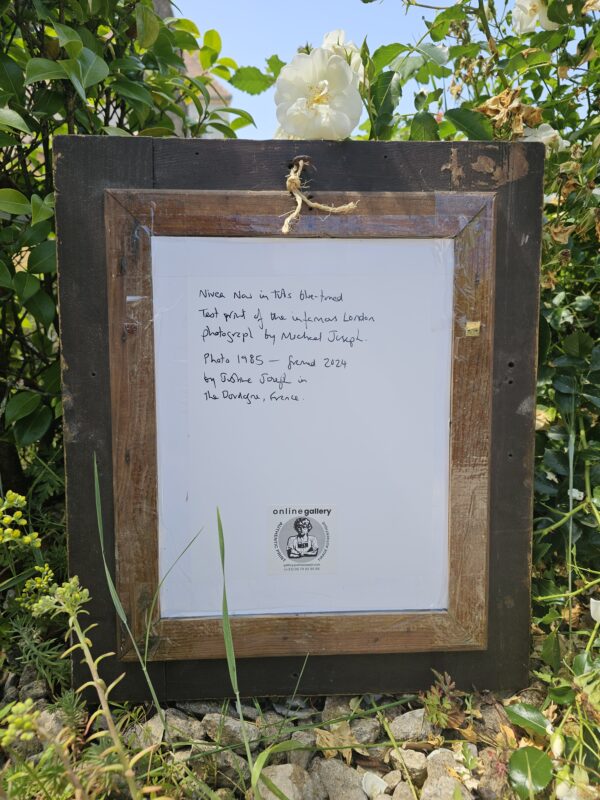 Nivea Now in this blue-toned
Test print of the infamous London
photograph by Michael Joseph.
Photo 1985 — framed 2024
by Justine Joseph in
the Dordogne, France.
onlinegallery